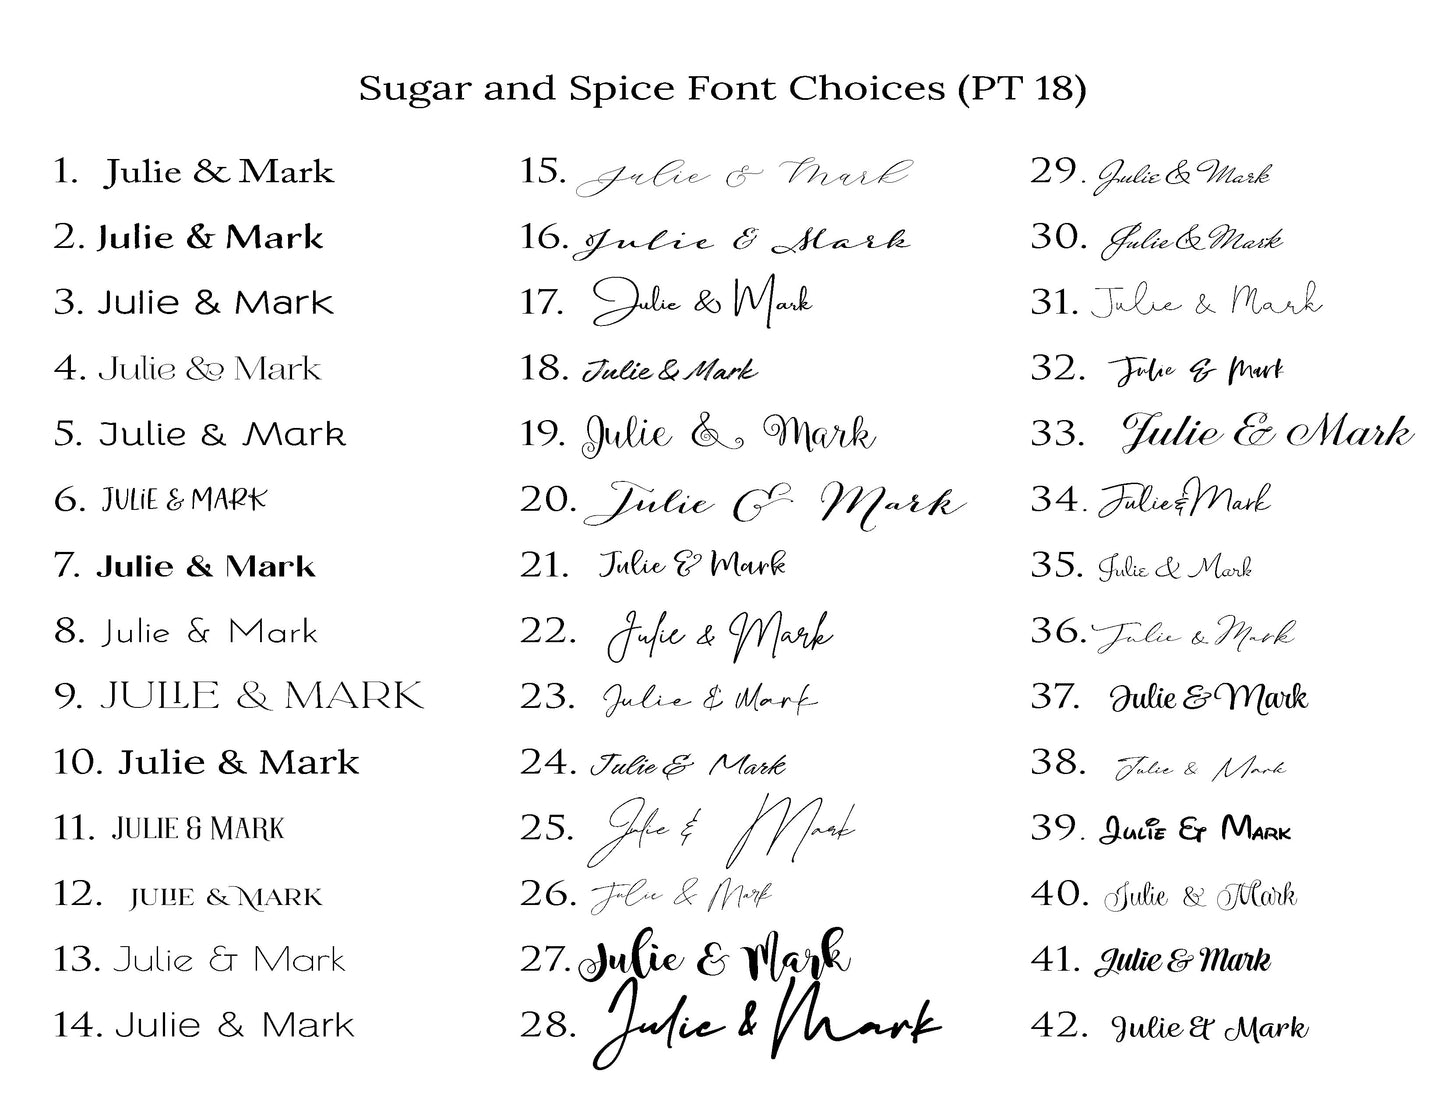 Sugar and Spice Font Choices (PT 18)
1. Julie & Mark
2. Julie & Mark
3. Julie & Mark
4. Julie & Mark
5. Julie & Mark
6. JULIE & MARK
7. Julie & Mark
8. Julie & Mark
9. JULIE & MARK
10. Julie & Mark
11. JULIE & MARK
12. JULIE & MARK
13. Julie & Mark
14. Julie & Mark
15. Julie & Mark
16. Julie & Mark
17. Julie & Mark
18. Julie & Mark
19. Julie & Mark
20. Julie & Mark
21. Julie & Mark
22. Julie & Mark
23. Julie & Mark
24. Julie & Mark
25. Julie & Mark
26. Julie & Mark
27. Julie & Mark
28. Julie & Mark
29. Julie & Mark
30. Julie & Mark
31. Julie & Mark
32. Julie & Mark
33. Julie & Mark
34. Julie & Mark
35. Julie & Mark
36. Julie & Mark
37. Julie & Mark
38. Julie & Mark
39. Julie & Mark
40. Julie & Mark
41. Julie & Mark
42. Julie & Mark